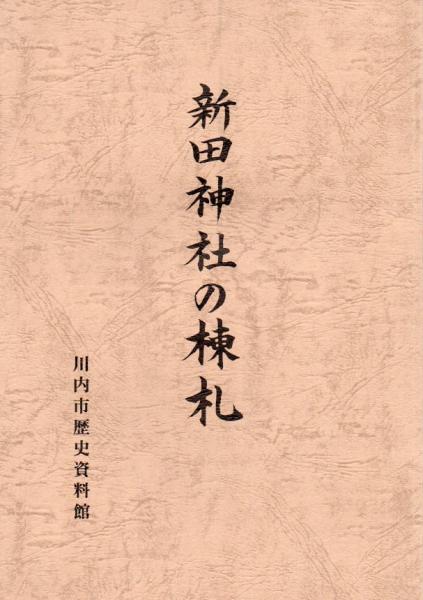 新田神社の棟札
川内市歴史資料館